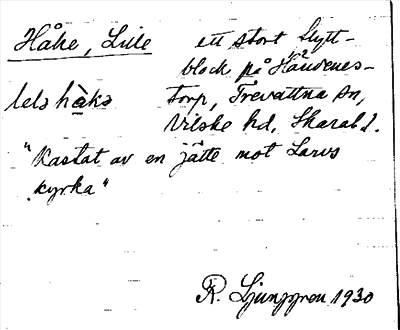 Håke, Lille ett stort flytt-
block på Händenes-
lelə hàkə torp, Trevattna sn,
Vilske hd, Skarab. l.
"Kastat av en jätte mot Larvs
kyrka"
R. Ljunggren 1930